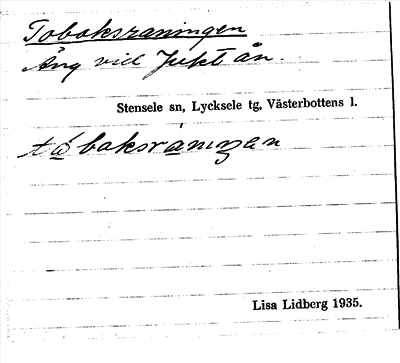 Tobaksraningen
Äng vid Jukt ån.
Stensele sn, Lycksele tg, Västerbottens l.
tåbaksrániŋen
Lisa Lidberg 1935.